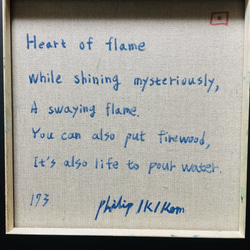 Heart of flame
while shining mysteriously,
A swaying flame.
You can also put firewood,
It's also life to pour water.
173 philip